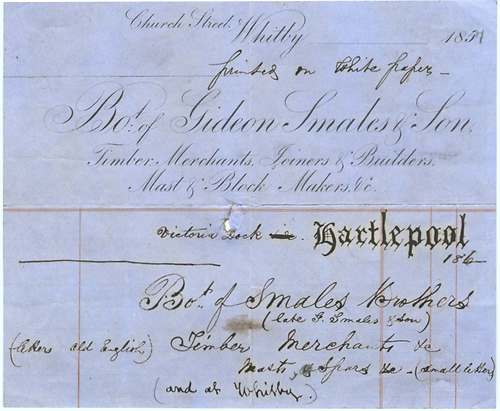 Church Street, Whitby 185
printed on White paper -
Bot. of Gideon Smales & Son,
Timber Merchants, Joiners & Builders,
Mast & Block Makers, &c.
Victoria Dock Hartlepool
186-
Bot. of Smales Brothers
(late G. Smales & Son)
(letters old English) Timber Merchants &c
Masts, Spars &c - (small letters)
(and at Whitby).